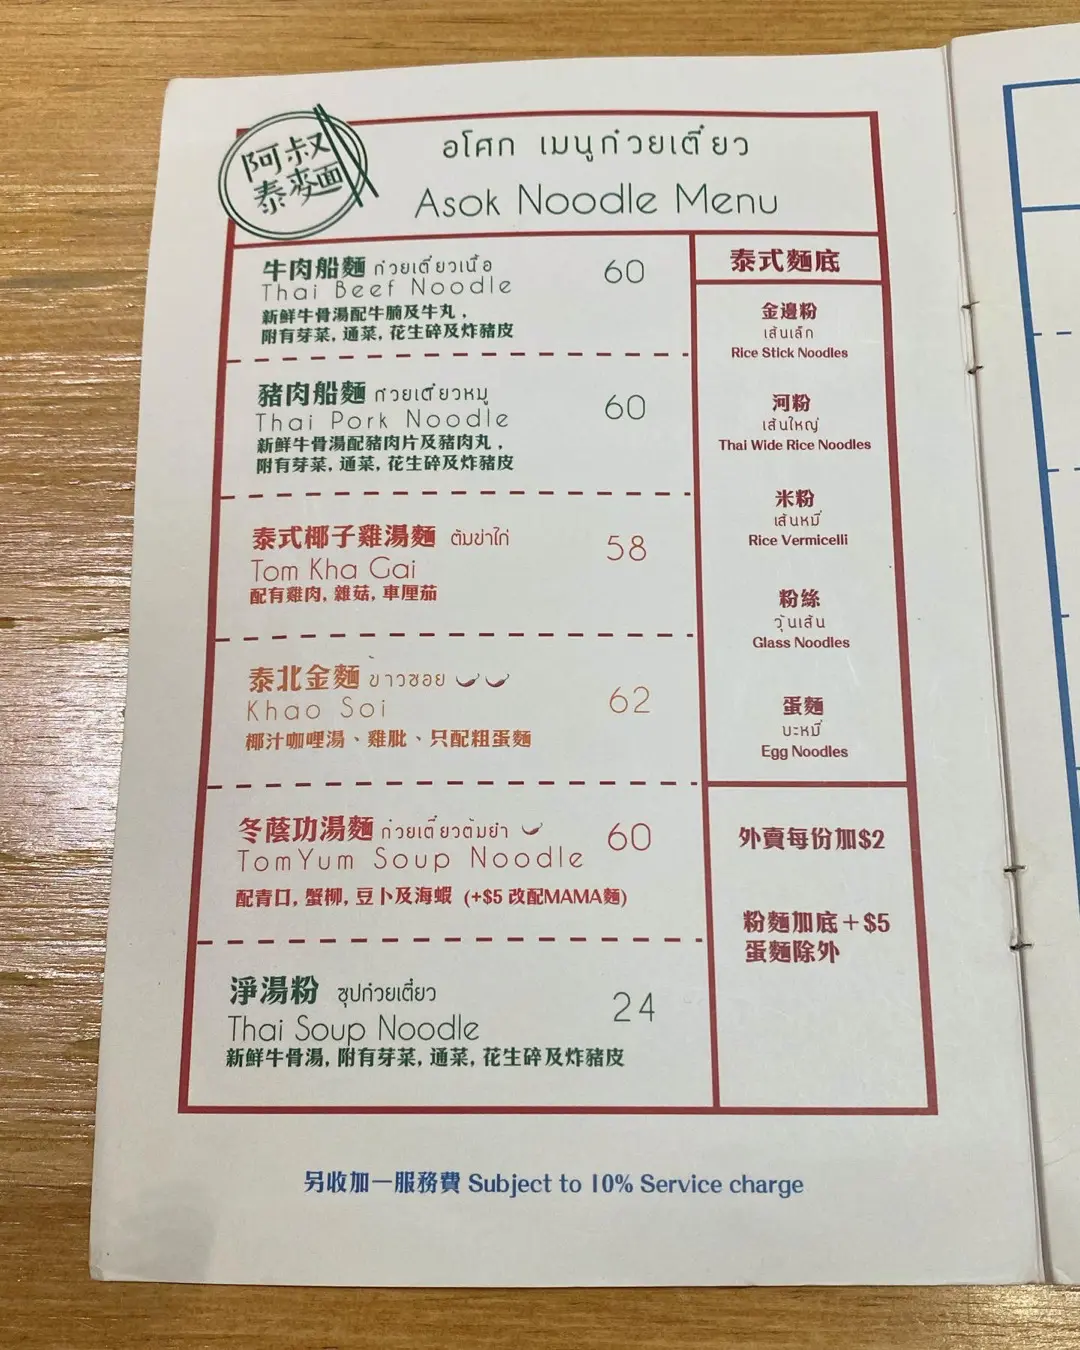 阿叔
泰麥面
อโศก เมนูก๋วยเตี๋ยว
Asok Noodle Menu
牛肉船麵 ก๋วยเตี๋ยวเนื้อ 60
Thai Beef Noodle
新鮮牛骨湯配牛腩及牛丸,
附有芽菜, 通菜, 花生碎及炸豬皮
豬肉船麵 ก๋วยเตี๋ยวหมู 60
Thai Pork Noodle
新鮮牛骨湯配豬肉片及豬肉丸,
附有芽菜, 通菜, 花生碎及炸豬皮
泰式椰子雞湯麵 ต้มข่าไก่ 58
Tom Kha Gai
配有雞肉, 雜菇, 車厘茄
泰北金麵 ข้าวซอย 62
Khao Soi
椰汁咖哩湯、雞肶、只配粗蛋麵
冬蔭功湯麵 ก๋วยเตี๋ยวต้มยำ 60
TomYum Soup Noodle
配青口, 蟹柳, 豆卜及海蝦 (+$5 改配MAMA麵)
淨湯粉 ซุปก๋วยเตี๋ยว 24
Thai Soup Noodle
新鮮牛骨湯, 附有芽菜, 通菜, 花生碎及炸豬皮
泰式麵底
金邊粉
เส้นเล็ก
Rice Stick Noodles
河粉
เส้นใหญ่
Thai Wide Rice Noodles
米粉
เส้นหมี่
Rice Vermicelli
粉絲
วุ้นเส้น
Glass Noodles
蛋麵
บะหมี่
Egg Noodles
外賣每份加$2
粉麵加底+$5
蛋麵除外
另收加一服務費 Subject to 10% Service charge